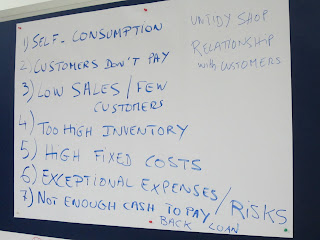 1) SELF-CONSUMPTION
2) CUSTOMERS DON'T PAY
3) LOW SALES / FEW
CUSTOMERS
4) TOO HIGH INVENTORY
5) HIGH FIXED COSTS
6) EXCEPTIONAL EXPENSES / RISKS
7) NOT ENOUGH CASH TO PAY
BACK LOAN
UNTIDY SHOP
RELATIONSHIP
with CUSTOMERS